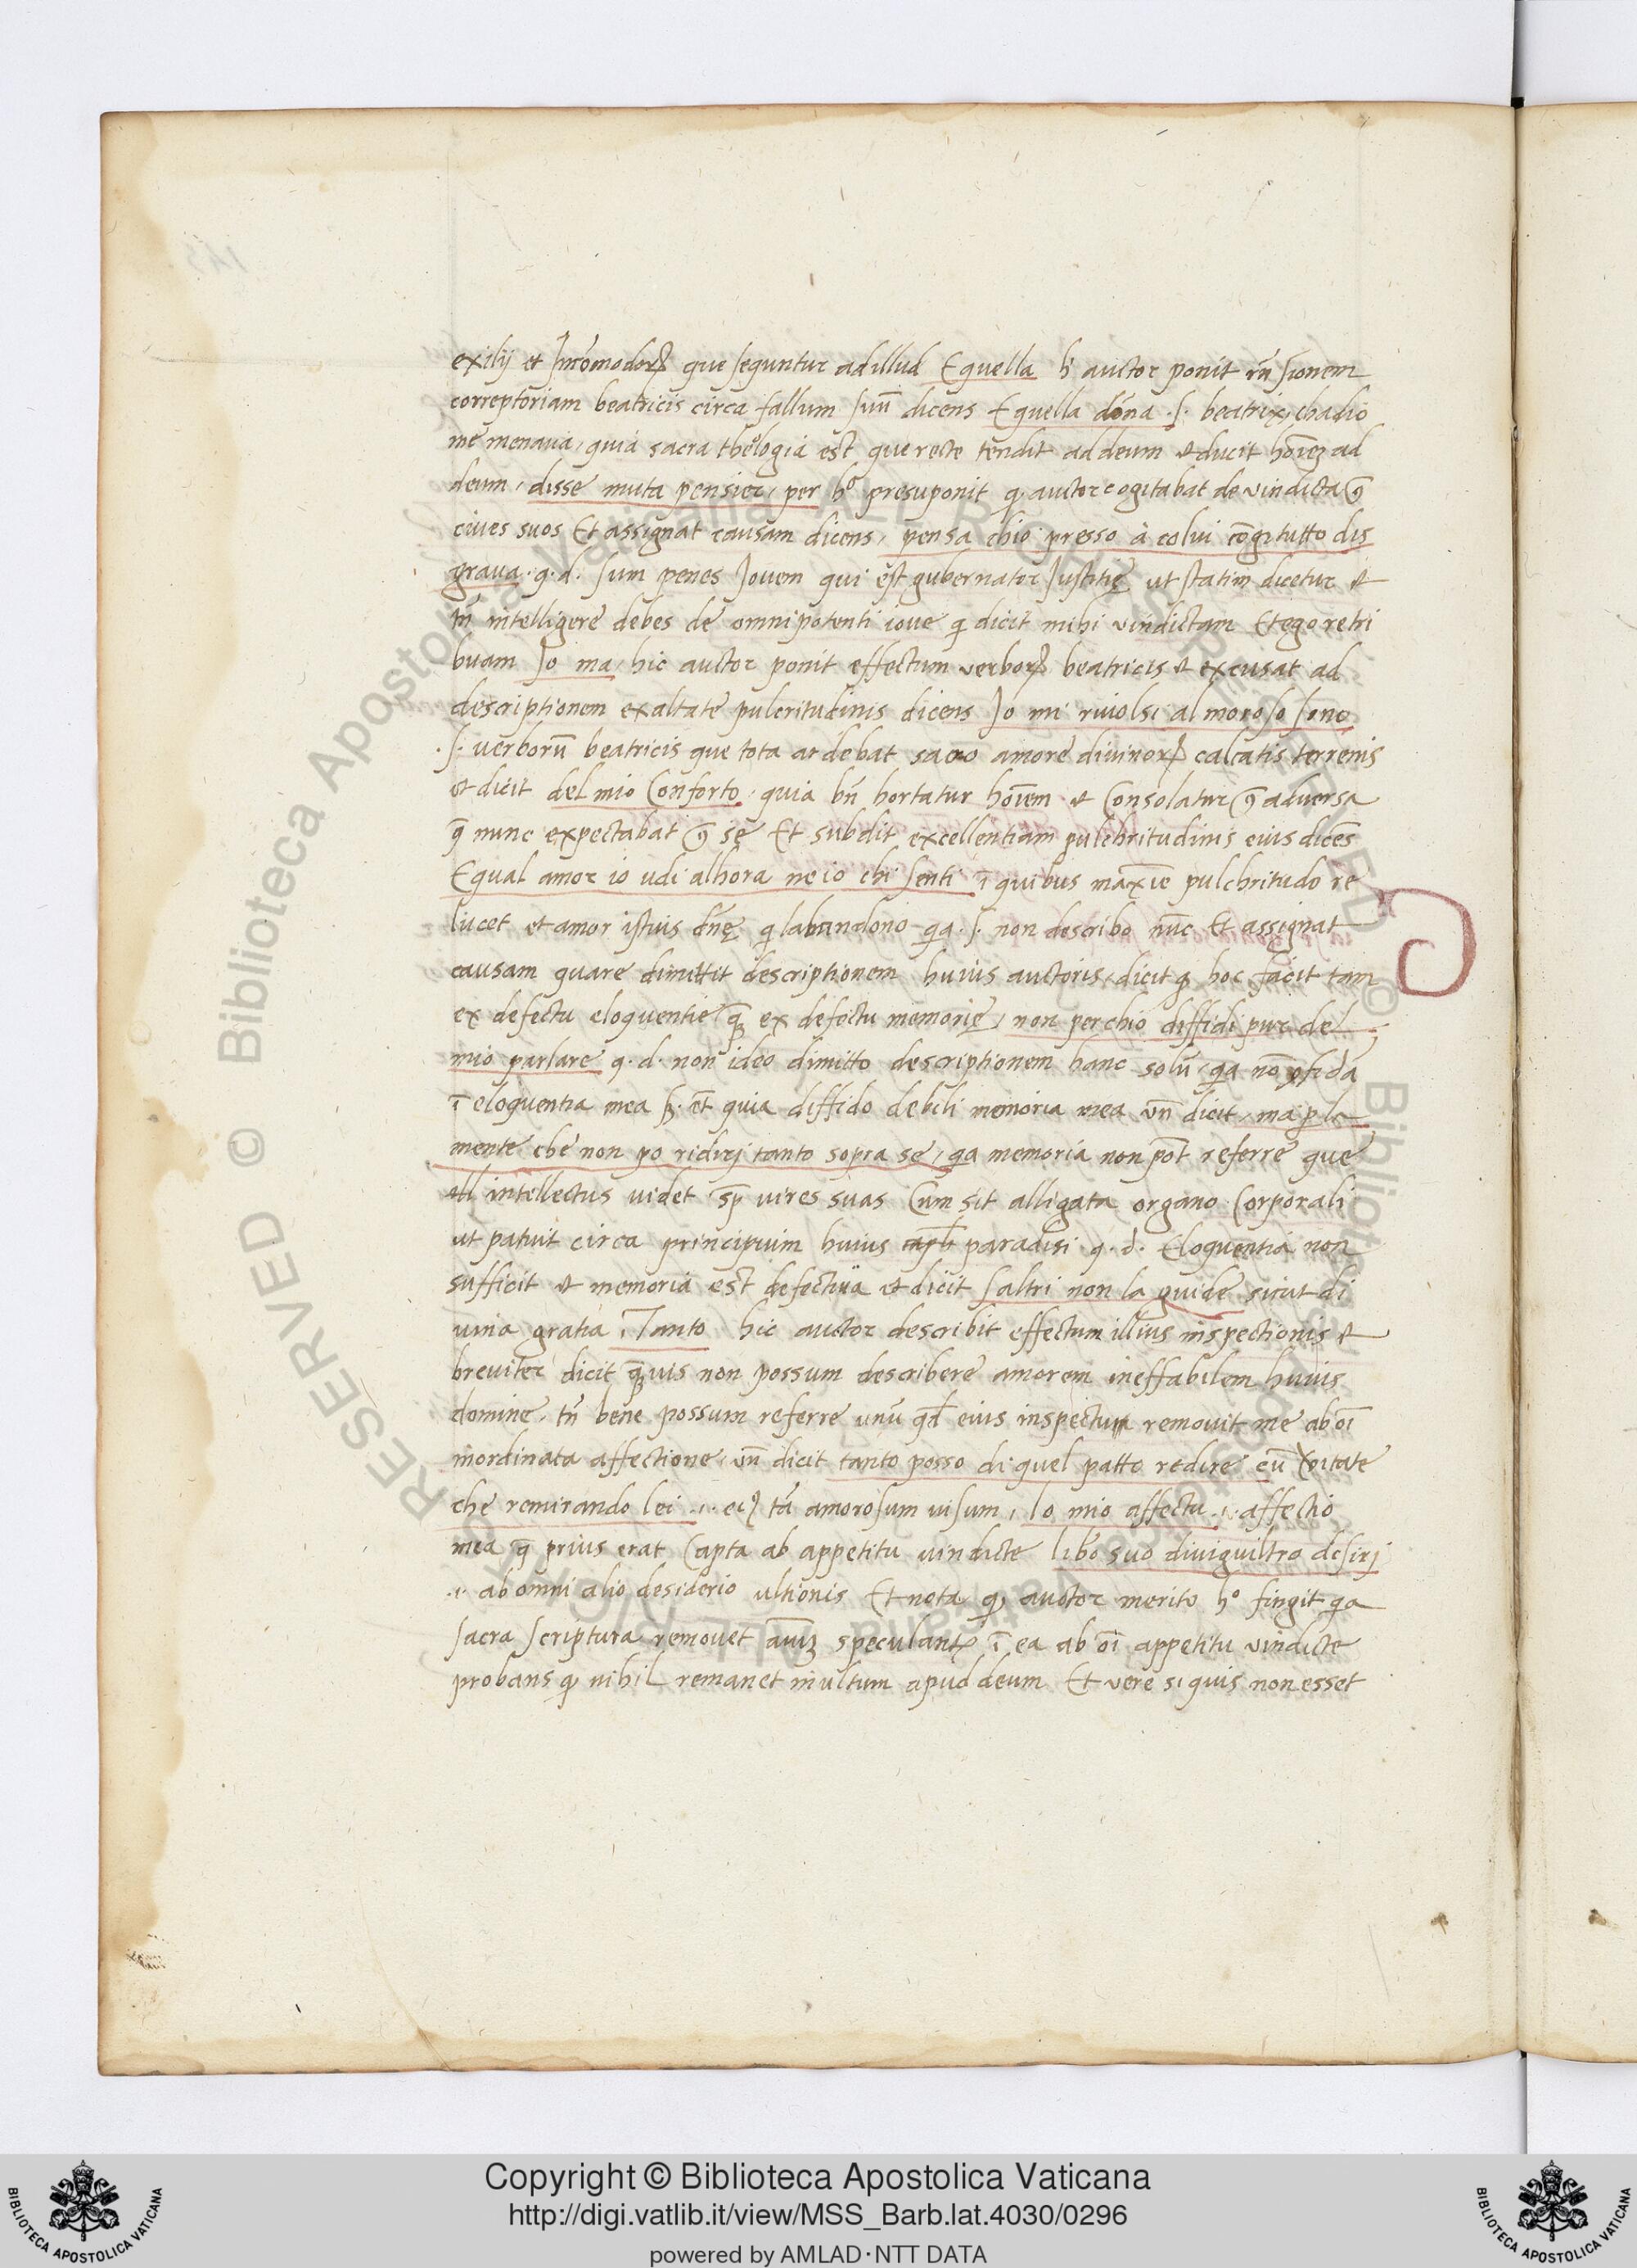 exilij et Incōmodoꝝ que seguntur ad illud Equella h̄ auctor ponit rn̄sionem
correptoriam beatricis circa fallum suū dicens Equella dōna .s. beatrix, chadio
me menaua, quia sacra theologia est que recte tendit ad deum et ducit hoīeꝫ ad
deum, disse muta pensier, per hº presuponit ꝙ auctor cogitabat de vindicta ꝯ̄
ciues suos Et assignat causam dicens, pensa chio presso à colui cōgi tutto dis
graua .q.d. sum penes Iouem qui est gubernator Iustitię ut statim dicetur et
tn̄ intelligere debes de omnipotenti ioue qi dicit mihi vindictam Et ego retri
buam Io ma, hic auctor ponit effectum verboꝝ beatricis et excusat ad
descriptionem exaltate pulcritudinis dicens Io mi riuolsi al moroso sono
.s. verborū beatricis que tota ardebat sacro amore diuinoꝝ calcatis terrenis
et dicit del mio Conforto, quia bn̄ hortatur hoīem et Consolatur ꝯ̄ aduersa
q̄ nunc expectabat ꝯ̄ se Et subdit excellentiam pulchritudinis eius dicēs
Equal amor io vdi alhora ne io chi senti ī quibus maxīe pulchritudo re
lucet et amor istius dn̄ę qi labandono qa .s. non describo nūc Et assignat
causam quare dimittit descriptionem huius auctoris, dicit ꝙ hoc facit tam
ex defectu eloquentie qꝫ̄ ex defectu memorię, non perchio diffidi pur del
mio parlare q.d. non ideo dimitto descriptionem hanc solū, qa nō ꝯfida
ī eloquentia mea sꝫ. et̄ quia diffido debili memoria mea vn̄ dicit, ma ꝑ la
mente che non po ridirj tanto sopra se, qa memoria non pot̄ referre que
intellectus videt sp̄ vires suas Cum sit alligata organo Corporali
ut patuit circa principium huius paradisi .q.d. Eloquentia non
sufficit et memoria est defectiua et dicit saltri non la guide sicut di
uina gratia, Tanto hic auctor describit effectum illius inspectionis et
breuiter dicit qꝫ̄uis non possum describere amorem ineffabilem huius
domine, tn̄ bene possum referre unū qd̄ eius inspectum remouit me ab oī
inordinata affectione, vn̄ dicit tanto posso di quel patto redire cū v̄itate
che remirando lei .i. eiꝰ tā amorosum uisum, lo mio affectu .i. affectio
mea q̄ prius erat Capta ab appetitu uindicte libo suo diuiguiltro desirj
.i. ab omni alio desiderio ultionis Et nota ꝙ auctor merito hº fingit qa
sacra scriptura remouet aīuꝫ speculantꝭ ī ea ab oī appetitu vindicte
probans ꝙ nihil remanet inultum apud deum Et vere si quis non esset
Copyright © Biblioteca Apostolica Vaticana
http://digi.vatlib.it/view/MSS_Barb.lat.4030/0296
powered by AMLAD·NTT DATA